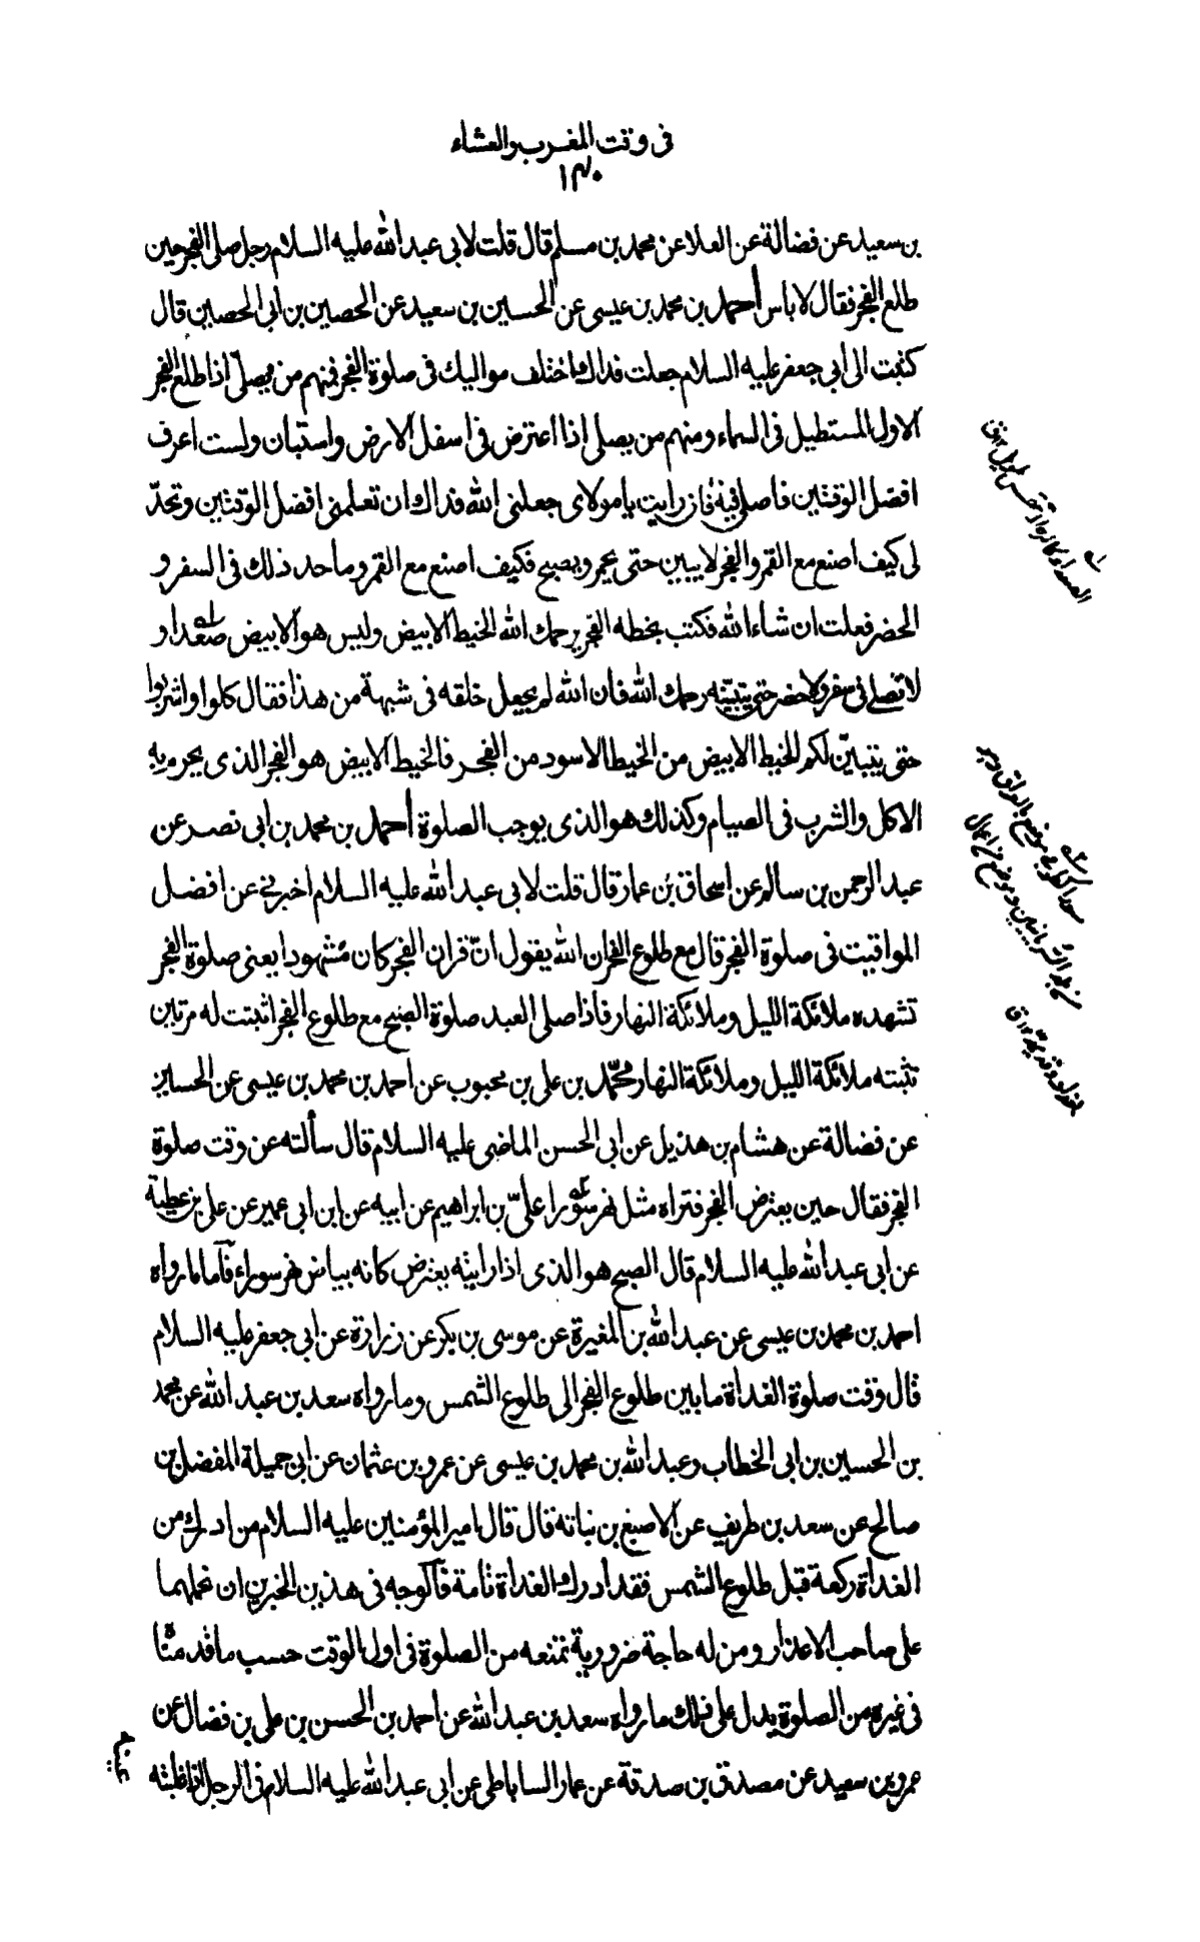 في وقت المغرب والعشاء
١٣٠
بن سعيد عن فضالة عن العلا عن محمد بن مسلم قال قلت لابي عبد الله عليه السلام رجل صلى الفجر حين
طلع الفجر فقال لا باس أحمد بن محمد بن عيسى عن الحسين بن سعيد عن الحصين بن أبي الحصين قال
كتبت الى أبي جعفر عليه السلام جعلت فداك اختلف مواليك في صلوة الفجر فمنهم من يصلى اذا طلع الفجر
الاول المستطيل في السماء ومنهم من يصلى اذا اعترض في اسفل الارض واستبان ولست اعرف
افضل الوقتين فاصلى فيه فان رايت يا مولاى جعلنى الله فداك ان تعلمنى افضل الوقتين وتحدّ
لى كيف اصنع مع القمر والفجر لا يبين حتى يحمر ويصبح فكيف اصنع مع القمر وما حد ذلك في السفر و
الحضر فعلت ان شاء الله فكتب بخطه الفجر يرحمك الله الخيط الابيض وليس هو الابيض صعدا و
لا تصلي في سفر ولا حضر حتى يتبينه رحمك الله فان الله لم يجعل خلقه في شبهة من هذا فقال كلوا واشربوا
حتى يتبيّن لكم الخيط الابيض من الخيط الاسود من الفجر فالخيط الابيض هو الفجر الذى يحرم به
الاكل والشرب في الصيام وكذلك هو الذى يوجب الصلوة أحمد بن محمد بن ابى نصر عن
عبد الرحمن بن سالم عن اسحاق بن عمار قال قلت لابى عبد الله عليه السلام اخبرني عن افضل
المواقيت في صلوة الفجر قال مع طلوع الفجر ان الله يقول انّ قران الفجر كان مشهودا يعنى صلوة الفجر
تشهده ملائكة الليل وملائكة النهار فاذا صلى العبد صلوة الصبح مع طلوع الفجر اثبتت له مرتين
تثبته ملائكة الليل وملائكة النهار محمّد بن على بن محبوب عن احمد بن محمد بن عيسى عن الحسين
عن فضالة عن هشام بن هذيل عن ابى الحسن الماضى عليه السلام قال سألته عن وقت صلوة
الفجر فقال حين يعترض الفجر فتراه مثل نهر سورا علىّ بن ابراهيم عن ابيه عن ابن ابى عمير عن على بن عطية
عن ابى عبد الله عليه السلام قال الصبح هو الذى اذا رايته يعترض كانه بياض نهر سوراء فاما ما رواه
احمد بن محمد بن عيسى عن عبد الله بن المغيرة عن موسى بن بكر عن زرارة عن ابى جعفر عليه السلام
قال وقت صلوة الغداة ما بين طلوع الفجر الى طلوع الشمس وما رواه سعد بن عبد الله عن محمد
بن الحسين بن ابى الخطاب وعبد الله بن محمد بن عيسى عن عمرو بن عثمان عن ابى جميلة المفضل بن
صالح عن سعد بن طريف عن الاصبغ بن نباته قال قال امير المؤمنين عليه السلام من ادرك من
الغداة ركعة قبل طلوع الشمس فقد أدرك الغداة تامة فالوجه في هذين الخبرين ان نحملهما
على صاحب الاعذار ومن له حاجة ضرورية تمنعه من الصلوة في اول الوقت حسب ما قدمنا
في غيره من الصلوة يدل على ذلك ما رواه سعد بن عبد الله عن احمد بن الحسن بن على بن فضال عن
عمرو بن سعيد عن مصدق بن صدقة عن عمار الساباطى عن ابى عبد الله عليه السلام في الرجل اذا غلبته